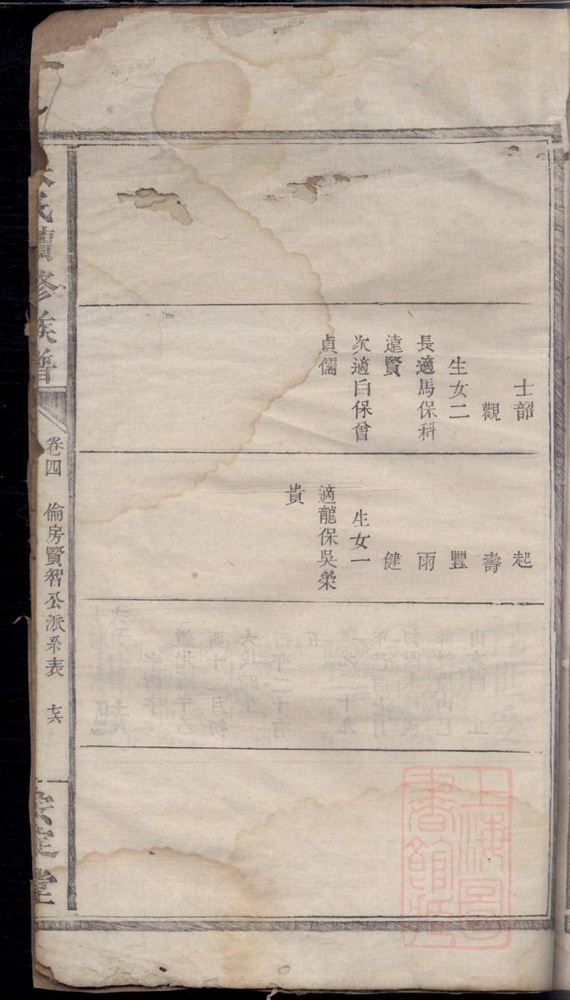 士韶
觀
生女二
長適馬保科
遠賢
次適白保曾
貞儒
起
壽
豐
雨
健
生女一
適龍保吳榮
貴
氏續修族譜
卷四
倫房賢智公派系表
安定堂
上海圖書館藏